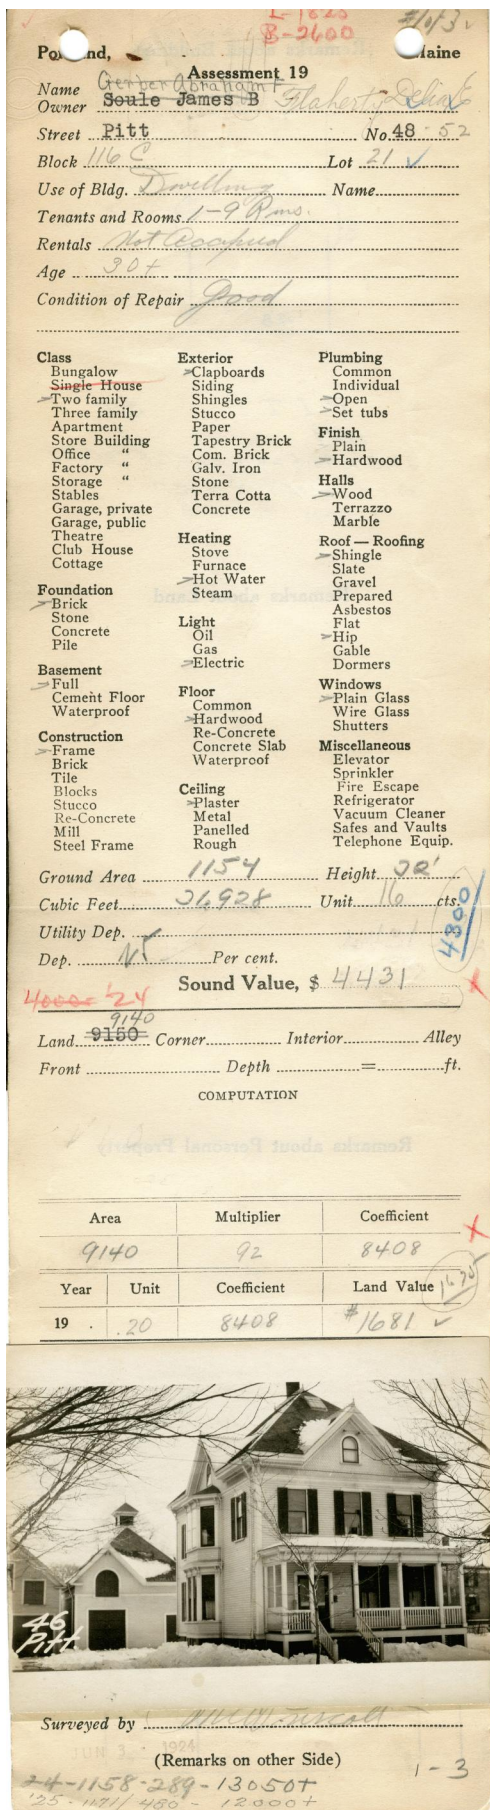 L-1625
B-2600
#1 of 3
Portland, Maine
Assessment 19
Gerber Abraham F
Name Owner Soule James B Flaherty, Delia E
Street Pitt No. 48-52
Block 116 C Lot 21 ✓
Use of Bldg. Dwelling Name
Tenants and Rooms 1-9 Rms.
Rentals Not Occupied
Age 30+
Condition of Repair Good
Class
Bungalow
Single House
Two family
Three family
Apartment
Store Building
Office "
Factory "
Storage "
Stables
Garage, private
Garage, public
Theatre
Club House
Cottage
Foundation
Brick
Stone
Concrete
Pile
Basement
Full
Cement Floor
Waterproof
Construction
Frame
Brick
Tile
Blocks
Stucco
Re-Concrete
Mill
Steel Frame
Exterior
Clapboards
Siding
Shingles
Stucco
Paper
Tapestry Brick
Com. Brick
Galv. Iron
Stone
Terra Cotta
Concrete
Heating
Stove
Furnace
Hot Water
Steam
Light
Oil
Gas
Electric
Floor
Common
Hardwood
Re-Concrete
Concrete Slab
Waterproof
Ceiling
Plaster
Metal
Panelled
Rough
Plumbing
Common
Individual
Open
Set tubs
Finish
Plain
Hardwood
Halls
Wood
Terrazzo
Marble
Roof — Roofing
Shingle
Slate
Gravel
Prepared
Asbestos
Flat
Hip
Gable
Dormers
Windows
Plain Glass
Wire Glass
Shutters
Miscellaneous
Elevator
Sprinkler
Fire Escape
Refrigerator
Vacuum Cleaner
Safes and Vaults
Telephone Equip.
Ground Area 1154 Height
Cubic Feet Unit 16 cts.
Utility Dep. 4300
Dep. Per cent.
Sound Value, $ 4431
4000 '24
9140
Land 9150 Corner Interior Alley
Front Depth = ft.
COMPUTATION
Area Multiplier Coefficient
9140 92 8408
Year Unit Coefficient Land Value
19 . .20 8408 $1681 ✓
46
Pitt
Surveyed by
JUN 3 - 1924
(Remarks on other Side)
1-3
24-1158-289-13050+
'25-1171/480-12000+